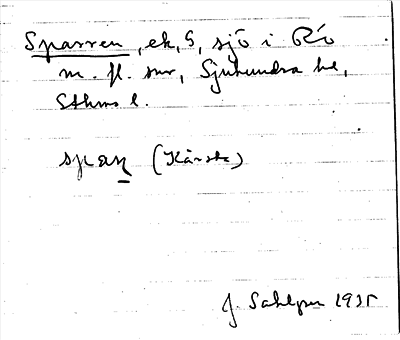 Sparren, ek, S, sjö i Rö
m. fl. snr, Sjuhundra hd,
Sthms l.
span (Kårsta)
J. Sahlgren 1935